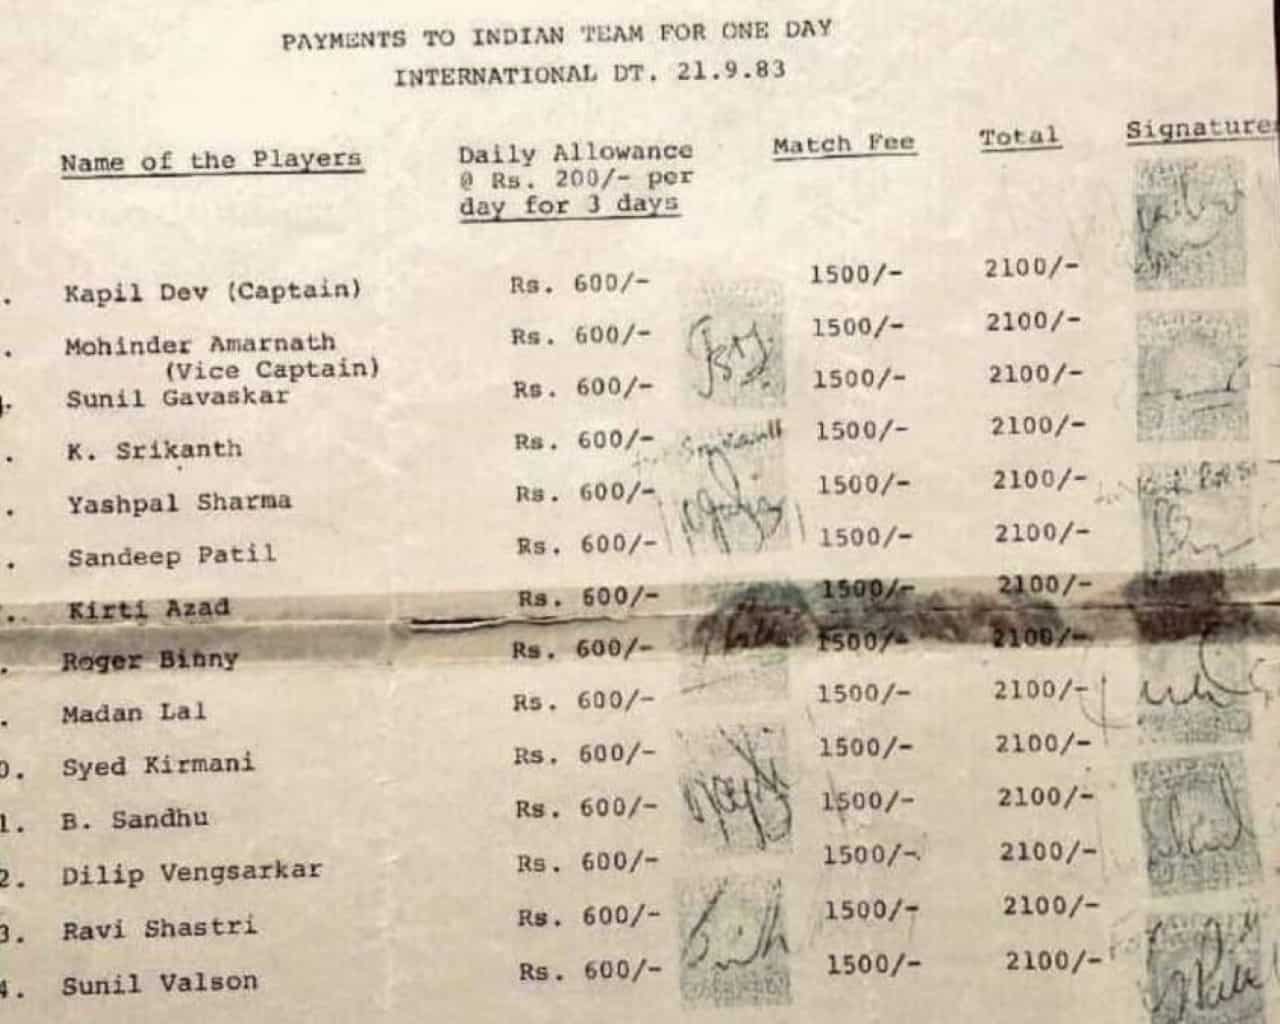 PAYMENTS TO INDIAN TEAM FOR ONE DAY
INTERNATIONAL DT. 21.9.83
Name of the Players Daily Allowance @ Rs. 200/- per day for 3 days Match Fee Total Signature
. Kapil Dev (Captain) Rs. 600/- 1500/- 2100/-
. Mohinder Amarnath Rs. 600/- 1500/- 2100/-
(Vice Captain)
. Sunil Gavaskar Rs. 600/- 1500/- 2100/-
. K. Srikanth Rs. 600/- 1500/- 2100/-
. Yashpal Sharma Rs. 600/- 1500/- 2100/-
. Sandeep Patil Rs. 600/- 1500/- 2100/-
. Kirti Azad Rs. 600/- 1500/- 2100/-
. Roger Binny Rs. 600/- 1500/- 2100/-
. Madan Lal Rs. 600/- 1500/- 2100/-
0. Syed Kirmani Rs. 600/- 1500/- 2100/-
1. B. Sandhu Rs. 600/- 1500/- 2100/-
2. Dilip Vengsarkar Rs. 600/- 1500/- 2100/-
3. Ravi Shastri Rs. 600/- 1500/- 2100/-
4. Sunil Valson Rs. 600/- 1500/- 2100/-